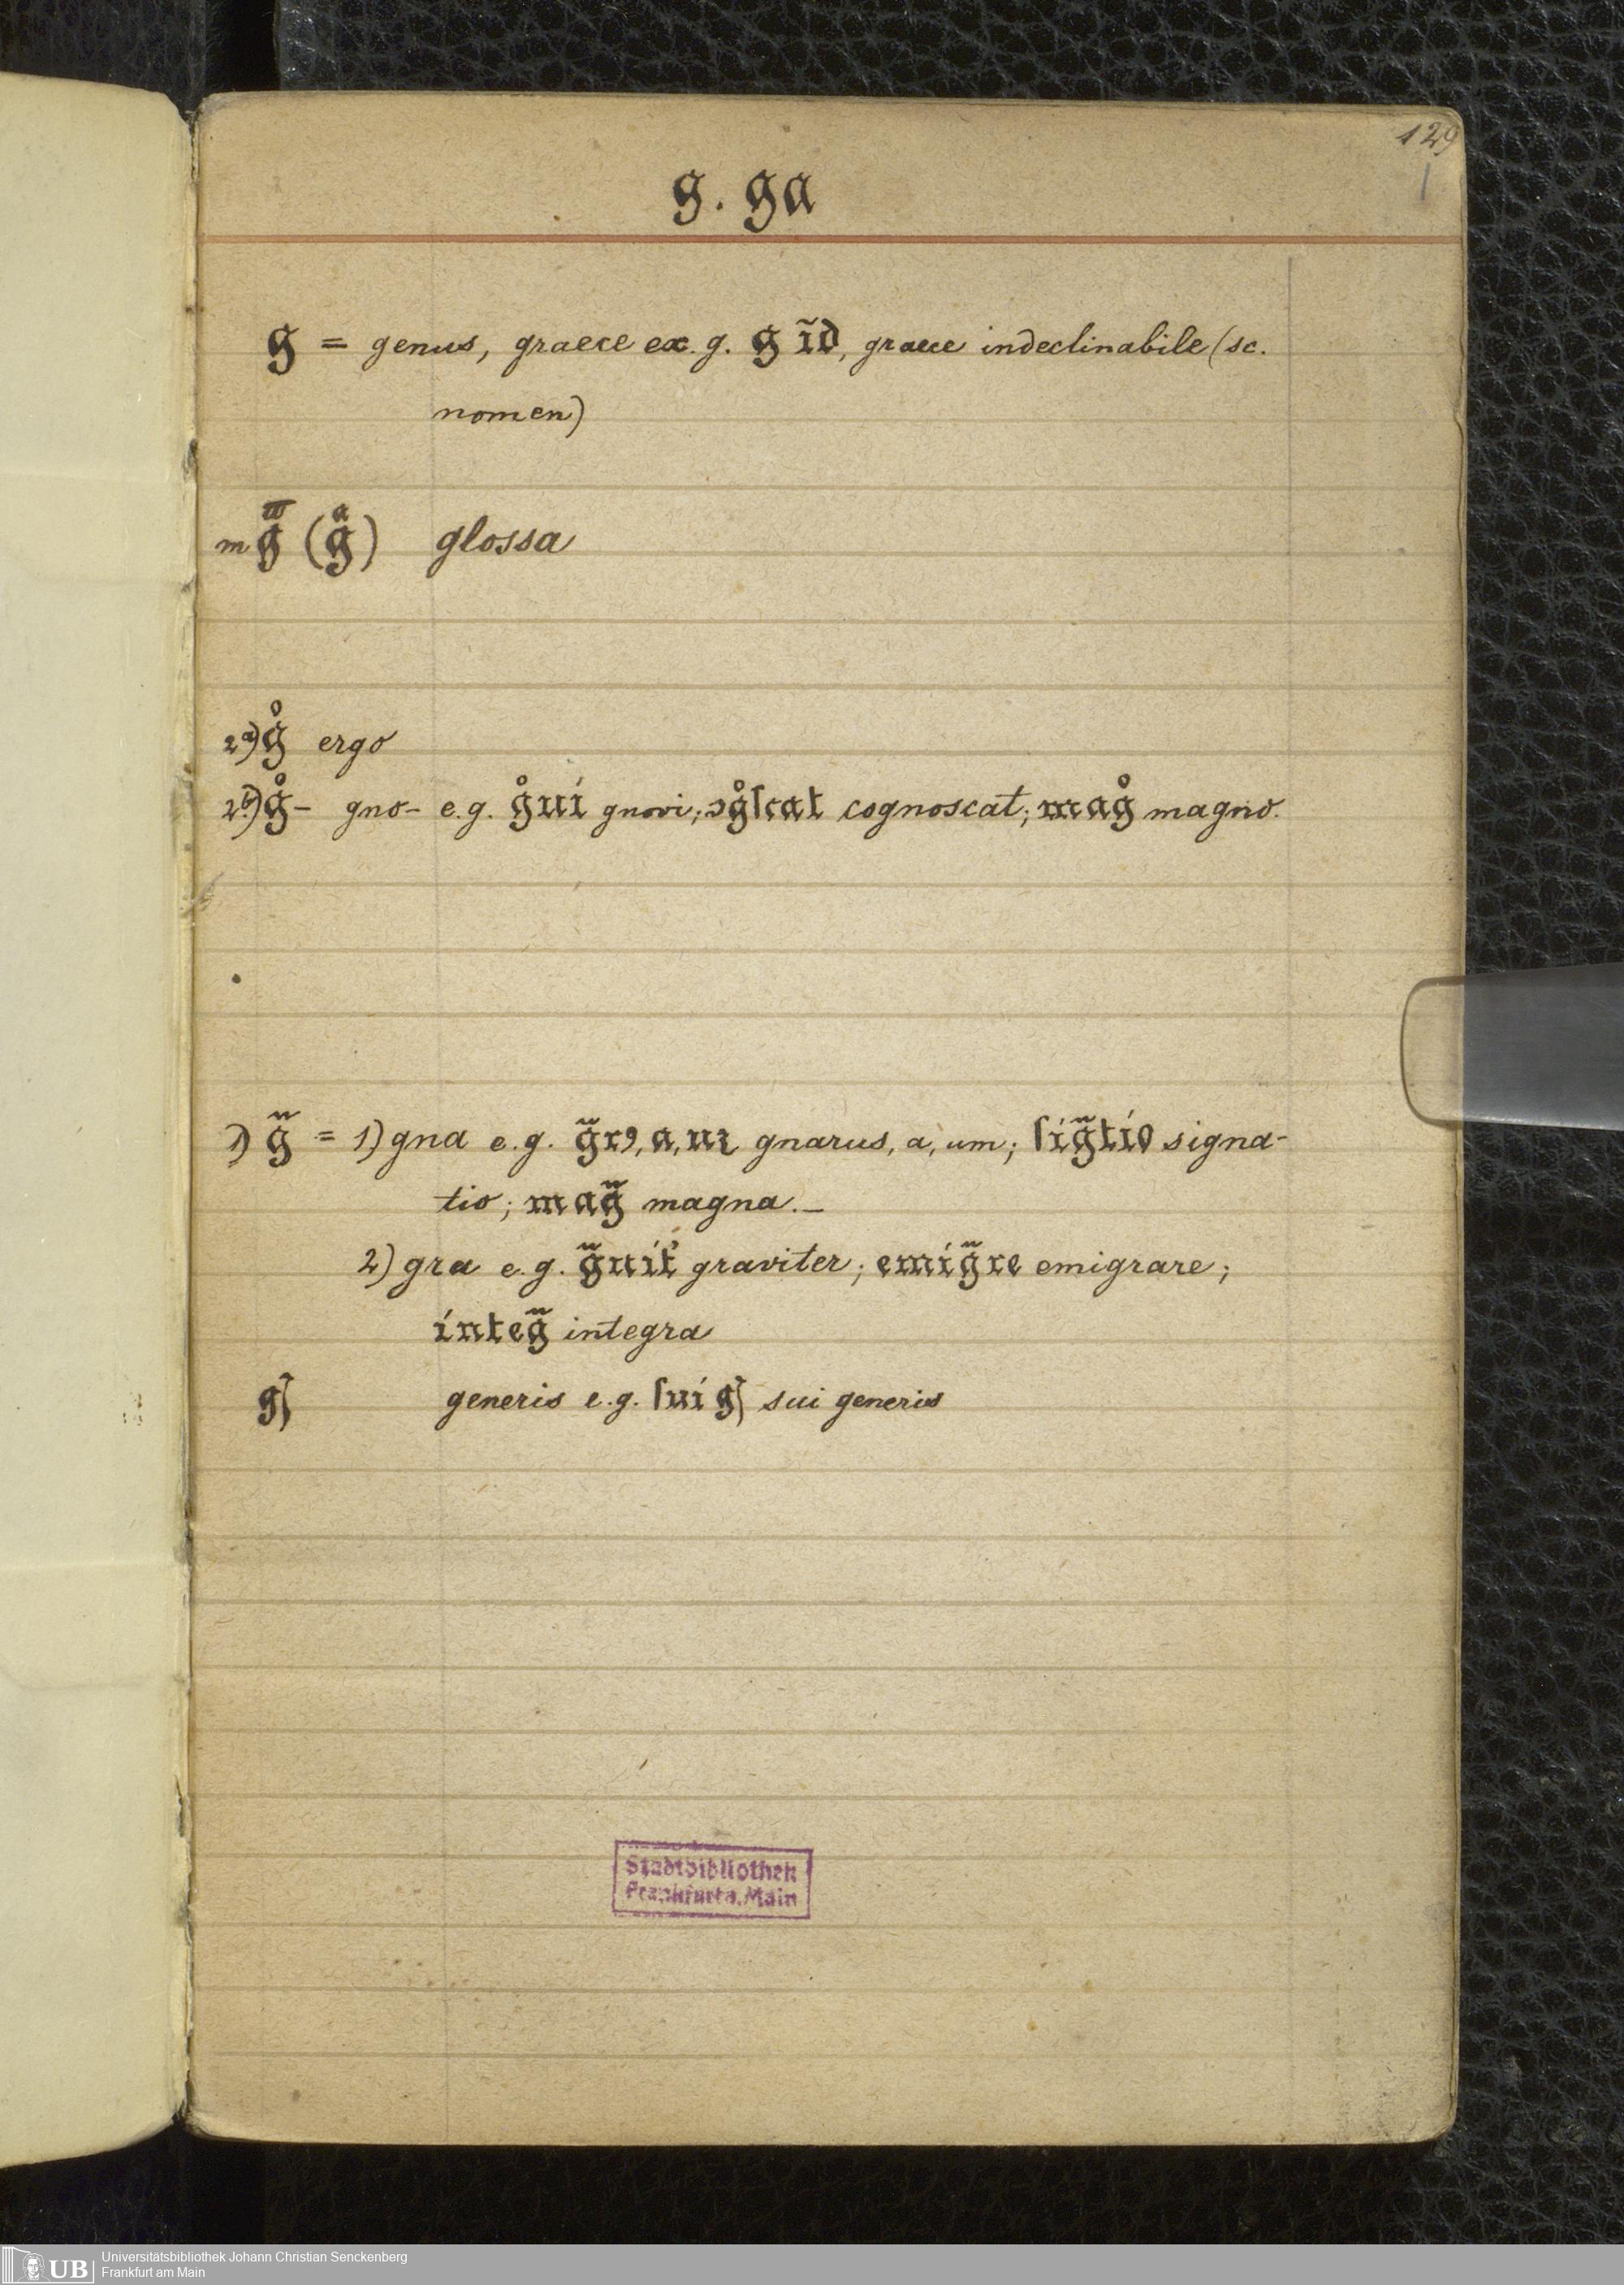 129
g. ga
g = genus, graece ex. g. g ĩd, graece indeclinabile (sc.
nomen)
m g̃ (gͣ) glossa
2a) g° ergo
2b) g°- gno- e.g. g°ui gnovi; ꜿg°ſcat cognoscat; mag° magno.
1) g̃ = 1) gna e.g. g̃rꝯ, a, uꝛ gnarus, a, um; ſig̃tio signa-
tio; mag̃ magna. –
2) gra e.g. g̃uit̓ graviter; emig̃re emigrare;
integ̃ integra
generis e.g. ſui gꝭ sui generis
Stadtbibliothek
Frankfurt a. Main
UB Universitätsbibliothek Johann Christian Senckenberg
Frankfurt am Main